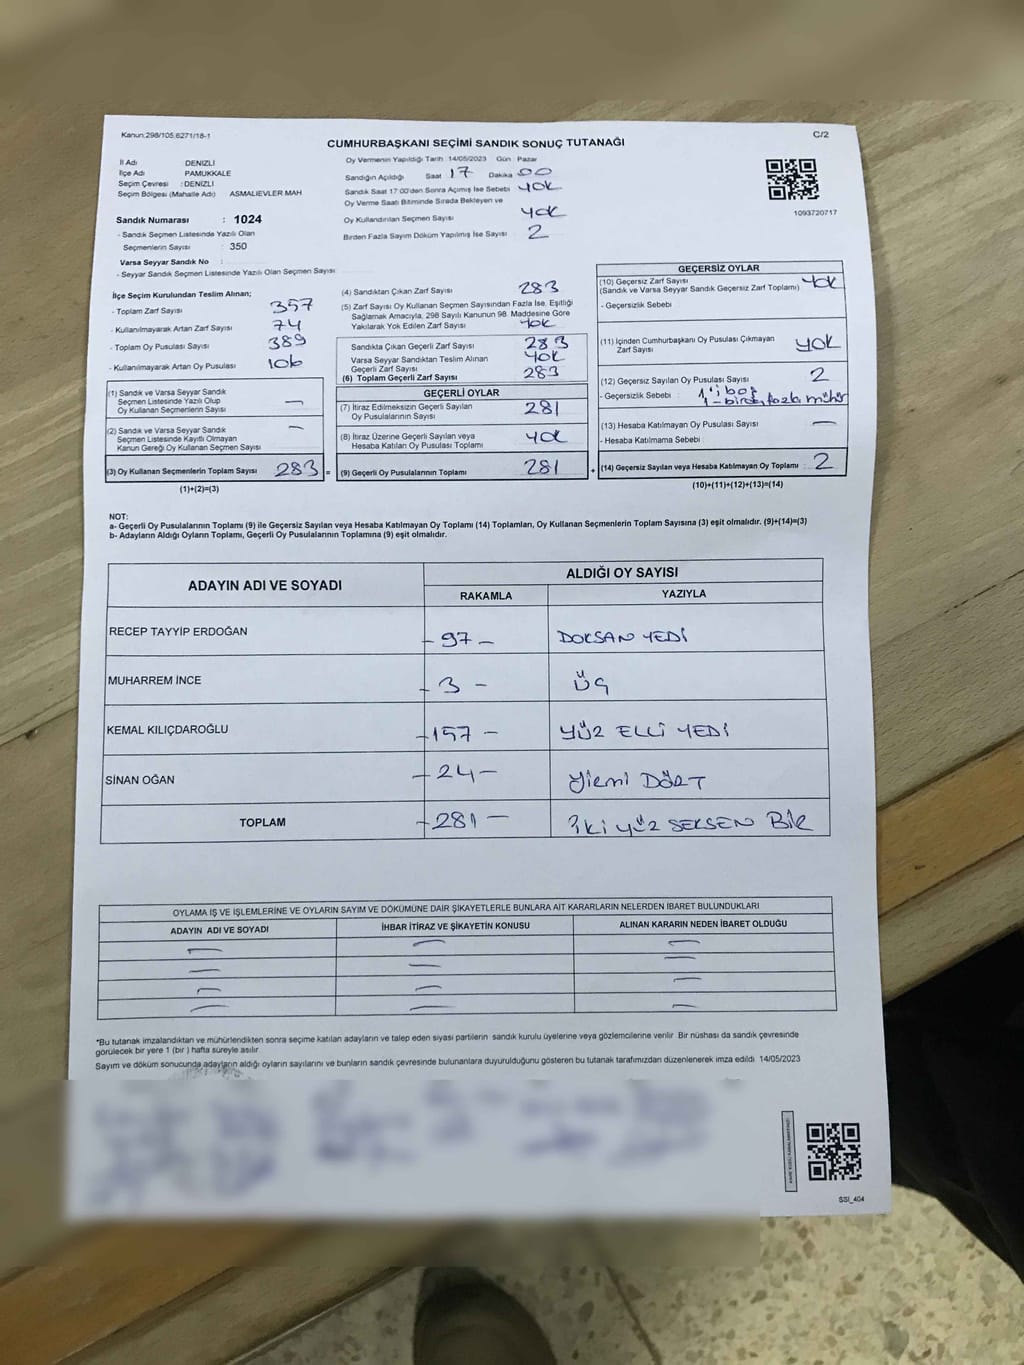 Kanun:298/105,6271/18-1
C/2
CUMHURBAŞKANI SEÇİMİ SANDIK SONUÇ TUTANAĞI
İl Adı DENİZLİ
İlçe Adı PAMUKKALE
Seçim Çevresi : DENİZLİ
Seçim Bölgesi (Mahalle Adı) ASMALIEVLER MAH.
Sandık Numarası : 1024
- Sandık Seçmen Listesinde Yazılı Olan
Seçmenlerin Sayısı : 350
Varsa Seyyar Sandık No :
- Seyyar Sandık Seçmen Listesinde Yazılı Olan Seçmen Sayısı
Oy Vermenin Yapıldığı Tarih 14/05/2023 Gün : Pazar
Sandığın Açıldığı Saat 17 Dakika 00
Sandık Saat 17:00'den Sonra Açılmış İse Sebebi YOK
Oy Verme Saati Bitiminde Sırada Bekleyen ve
Oy Kullandırılan Seçmen Sayısı YOK
Birden Fazla Sayım Döküm Yapılmış İse Sayısı : 2
1093720717
İlçe Seçim Kurulundan Teslim Alınan;
- Toplam Zarf Sayısı : 357
- Kullanılmayarak Artan Zarf Sayısı : 74
- Toplam Oy Pusulası Sayısı : 389
- Kullanılmayarak Artan Oy Pusulası : 106
(1) Sandık ve Varsa Seyyar Sandık
Seçmen Listesinde Yazılı Olup
Oy Kullanan Seçmenlerin Sayısı : —
(2) Sandık ve Varsa Seyyar Sandık
Seçmen Listesinde Kayıtlı Olmayan
Kanun Gereği Oy Kullanan Seçmen Sayısı : —
(3) Oy Kullanan Seçmenlerin Toplam Sayısı : 283 =
(1)+(2)=(3)
(4) Sandıktan Çıkan Zarf Sayısı : 283
(5) Zarf Sayısı Oy Kullanan Seçmen Sayısından Fazla İse, Eşitliği
Sağlamak Amacıyla, 298 Sayılı Kanunun 98. Maddesine Göre
Yakılarak Yok Edilen Zarf Sayısı : YOK
Sandıkta Çıkan Geçerli Zarf Sayısı : 283
Varsa Seyyar Sandıktan Teslim Alınan
Geçerli Zarf Sayısı : YOK
(6) Toplam Geçerli Zarf Sayısı : 283
GEÇERLİ OYLAR
(7) İtiraz Edilmeksizin Geçerli Sayılan
Oy Pusulalarının Sayısı : 281
(8) İtiraz Üzerine Geçerli Sayılan veya
Hesaba Katılan Oy Pusulası Toplamı : YOK
(9) Geçerli Oy Pusulalarının Toplamı : 281 +
GEÇERSİZ OYLAR
(10) Geçersiz Zarf Sayısı : YOK
(Sandık ve Varsa Seyyar Sandık Geçersiz Zarf Toplamı)
- Geçersizlik Sebebi :
(11) İçinden Cumhurbaşkanı Oy Pusulası Çıkmayan
Zarf Sayısı : YOK
(12) Geçersiz Sayılan Oy Pusulası Sayısı : 2
- Geçersizlik Sebebi : 1'i boş
1-birden fazla mühür
(13) Hesaba Katılmayan Oy Pusulası Sayısı : —
- Hesaba Katılmama Sebebi :
(14) Geçersiz Sayılan veya Hesaba Katılmayan Oy Toplamı : 2
(10)+(11)+(12)+(13)=(14)
NOT:
a- Geçerli Oy Pusulalarının Toplamı (9) ile Geçersiz Sayılan veya Hesaba Katılmayan Oy Toplamı (14) Toplamları, Oy Kullanan Seçmenlerin Toplam Sayısına (3) eşit olmalıdır. (9)+(14)=(3)
b- Adayların Aldığı Oyların Toplamı, Geçerli Oy Pusulalarının Toplamına (9) eşit olmalıdır.
ADAYIN ADI VE SOYADI ALDIĞI OY SAYISI
RAKAMLA YAZIYLA
RECEP TAYYİP ERDOĞAN - 97 - DOKSAN YEDİ
MUHARREM İNCE - 3 - ÜÇ
KEMAL KILIÇDAROĞLU - 157 - YÜZ ELLİ YEDİ
SİNAN OĞAN - 24 - Yirmi DÖRT
TOPLAM - 281 - İki YÜZ SEKSEN BİR
OYLAMA İŞ VE İŞLEMLERİNE VE OYLARIN SAYIM VE DÖKÜMÜNE DAİR ŞİKAYETLERLE BUNLARA AİT KARARLARIN NELERDEN İBARET BULUNDUKLARI
ADAYIN ADI VE SOYADI İHBAR İTİRAZ VE ŞİKAYETİN KONUSU ALINAN KARARIN NEDEN İBARET OLDUĞU
— — —
— — —
— — —
— — —
*Bu tutanak imzalandıktan ve mühürlendikten sonra seçime katılan adayların ve talep eden siyasi partilerin sandık kurulu üyelerine veya gözlemcilerine verilir. Bir nüshası da sandık çevresinde
görülecek bir yere 1 (bir ) hafta süreyle asılır.
Sayım ve döküm sonucunda adayların aldığı oyların sayılarını ve bunların sandık çevresinde bulunanlara duyurulduğunu gösteren bu tutanak tarafımızdan düzenlenerek imza edildi. 14/05/2023
SSI_404